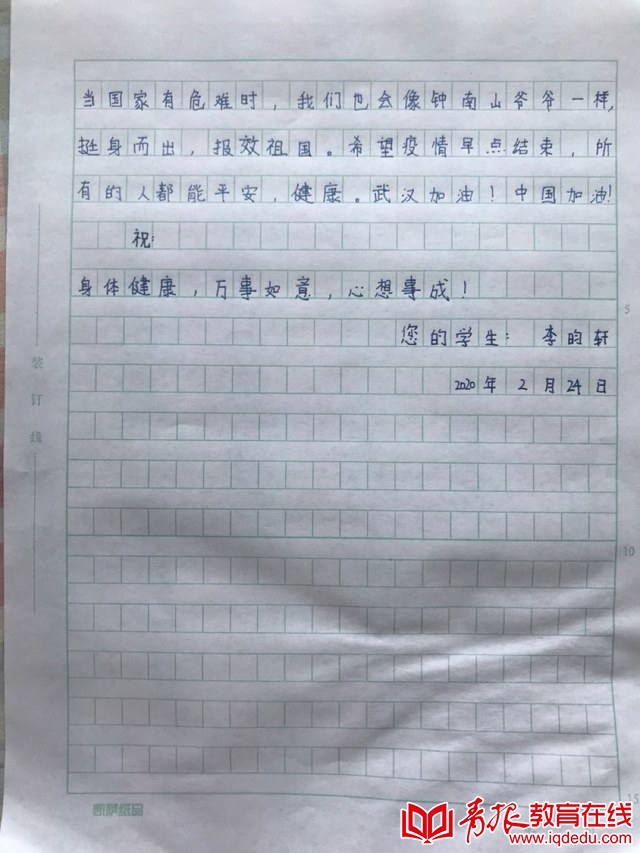 当国家有危难时，我们也会像钟南山爷爷一样，
挺身而出，报效祖国。希望疫情早点结束，所
有的人都能平安，健康。武汉加油！中国加油！
祝：
身体健康，万事如意，心想事成！
您的学生：李昀轩
2020年2月24日
5
装
订
线
10
15
凯萨纸品
青报教育在线
www.iqdedu.com